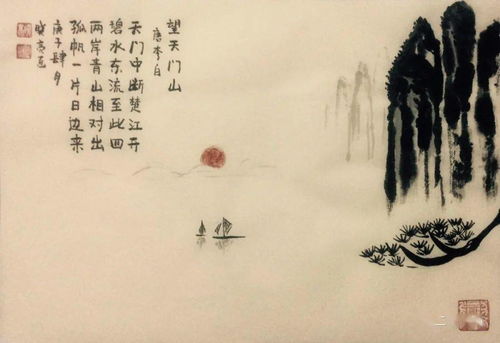 望天门山
唐李白
天门中断楚江开
碧水东流至此回
两岸青山相对出
孤帆一片日边来
庚子肆月
晓亮